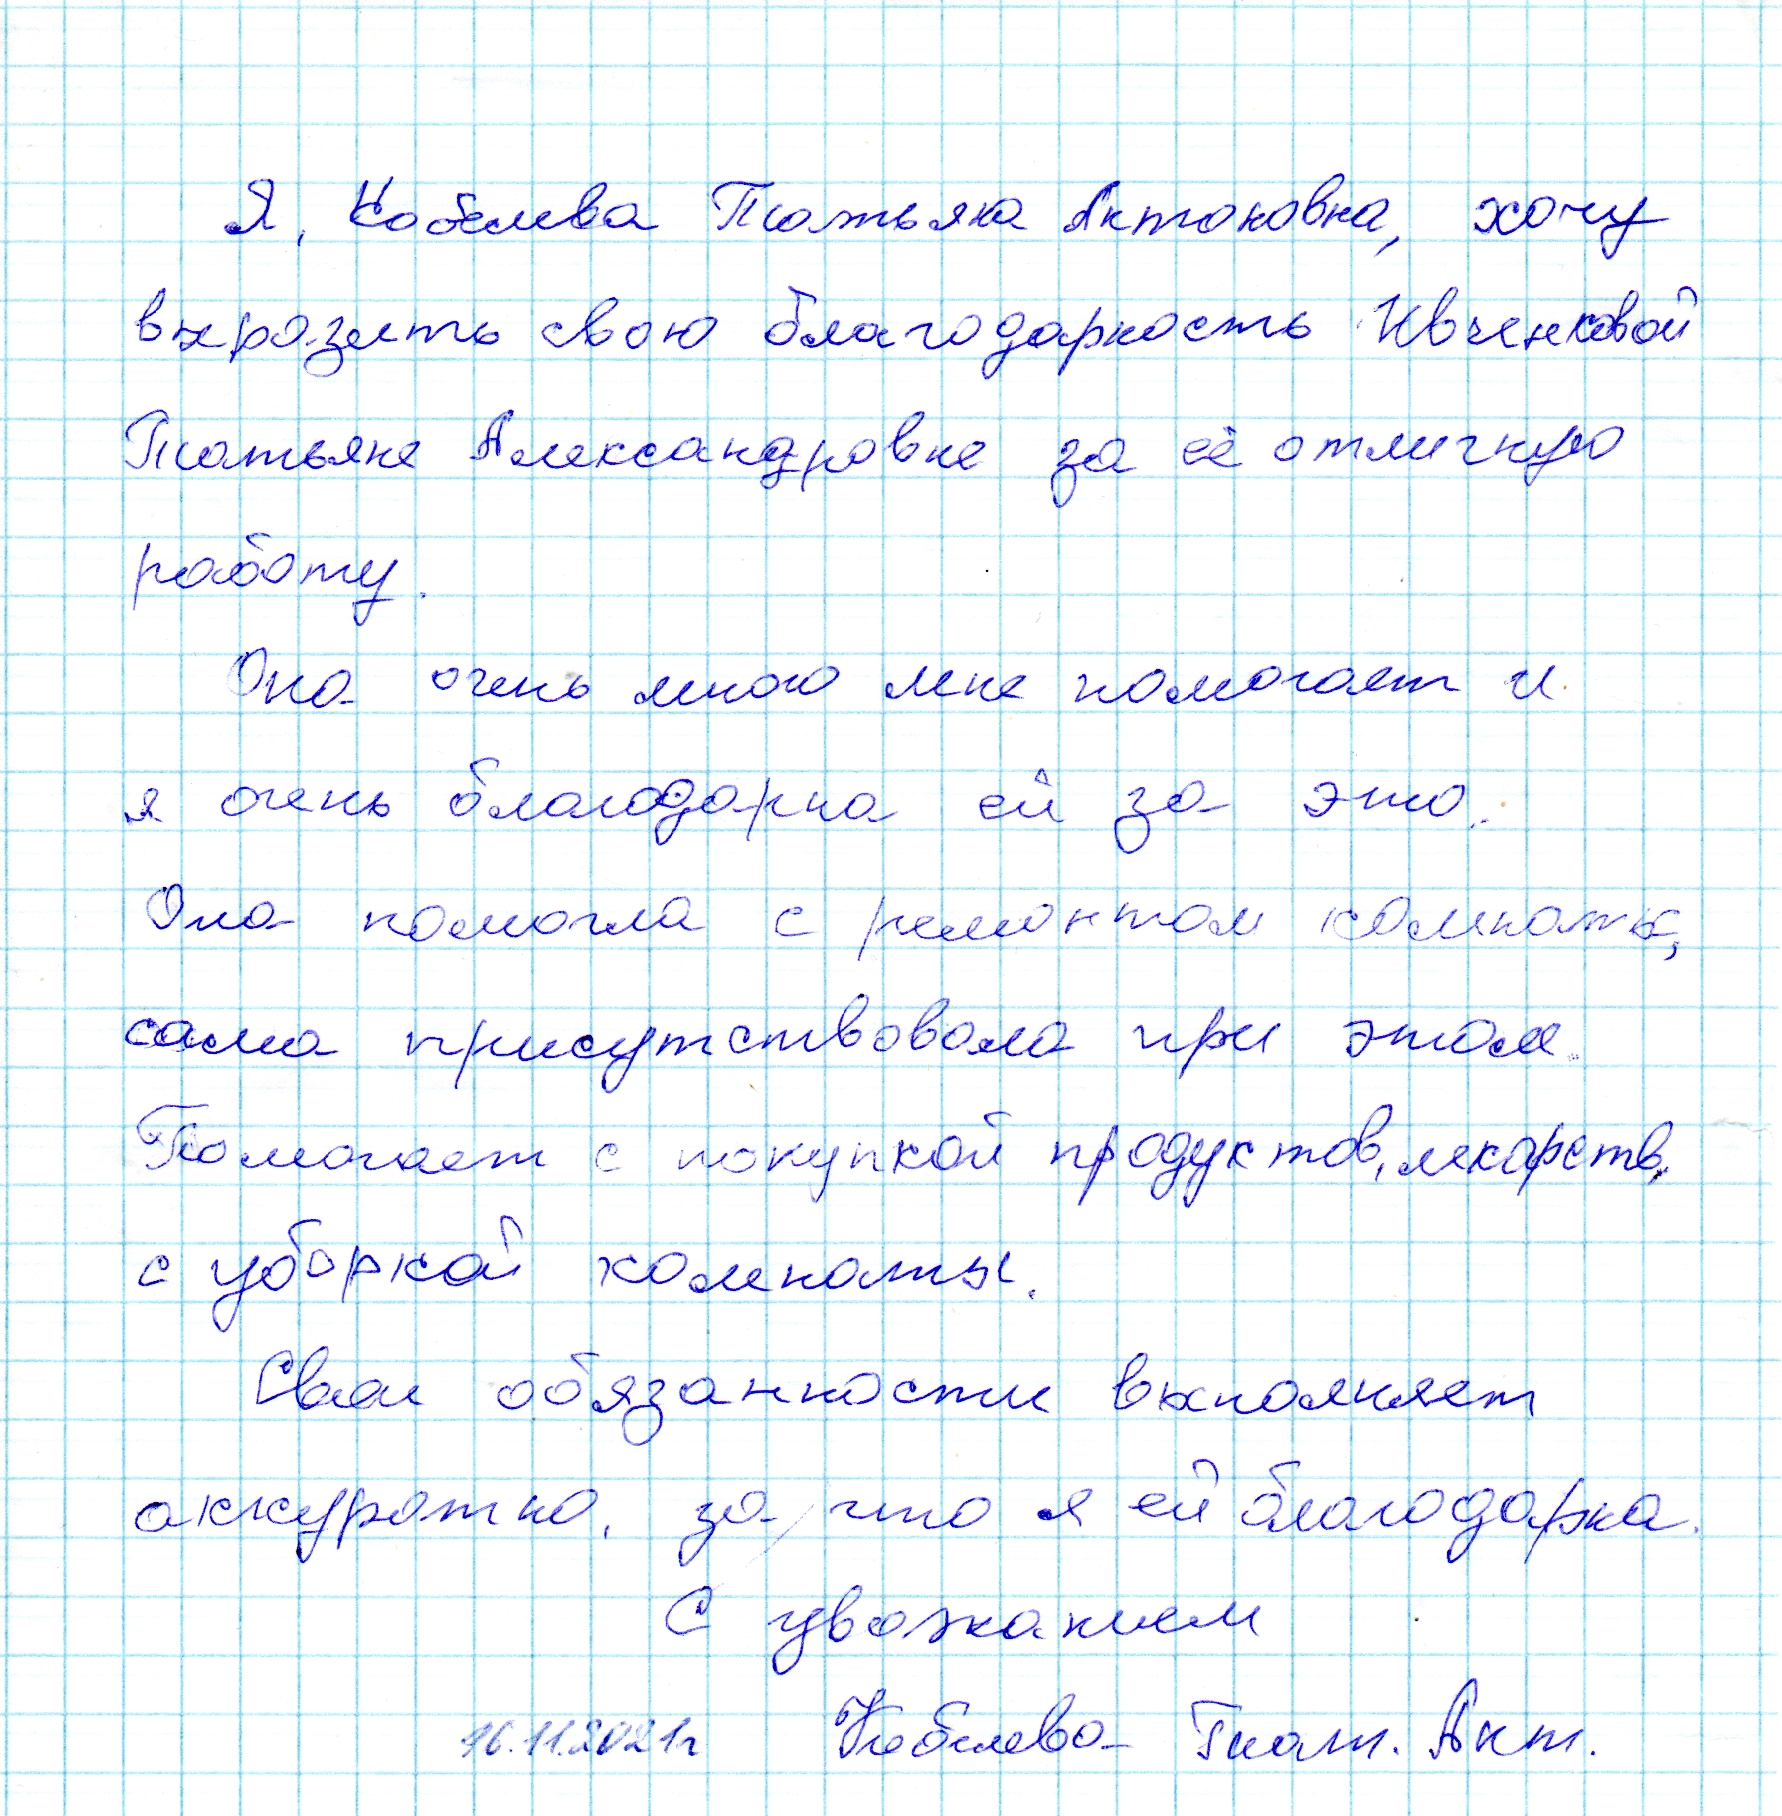 Я, Кобелева Татьяна Антоновна, хочу
выразить свою благодарность Ивченковой
Татьяне Александровне за её отличную
работу.
Она очень много мне помогает и
я очень благодарна ей за это.
Она помогла с ремонтом комнаты,
сама присутствовала при этом.
Помогает с покупкой продуктов, лекарств,
с уборкой комнаты.
Свои обязанности выполняет
аккуратно, за что я ей благодарна.
С уважанием
16.11.2021г Кобелева Тат. Ант.